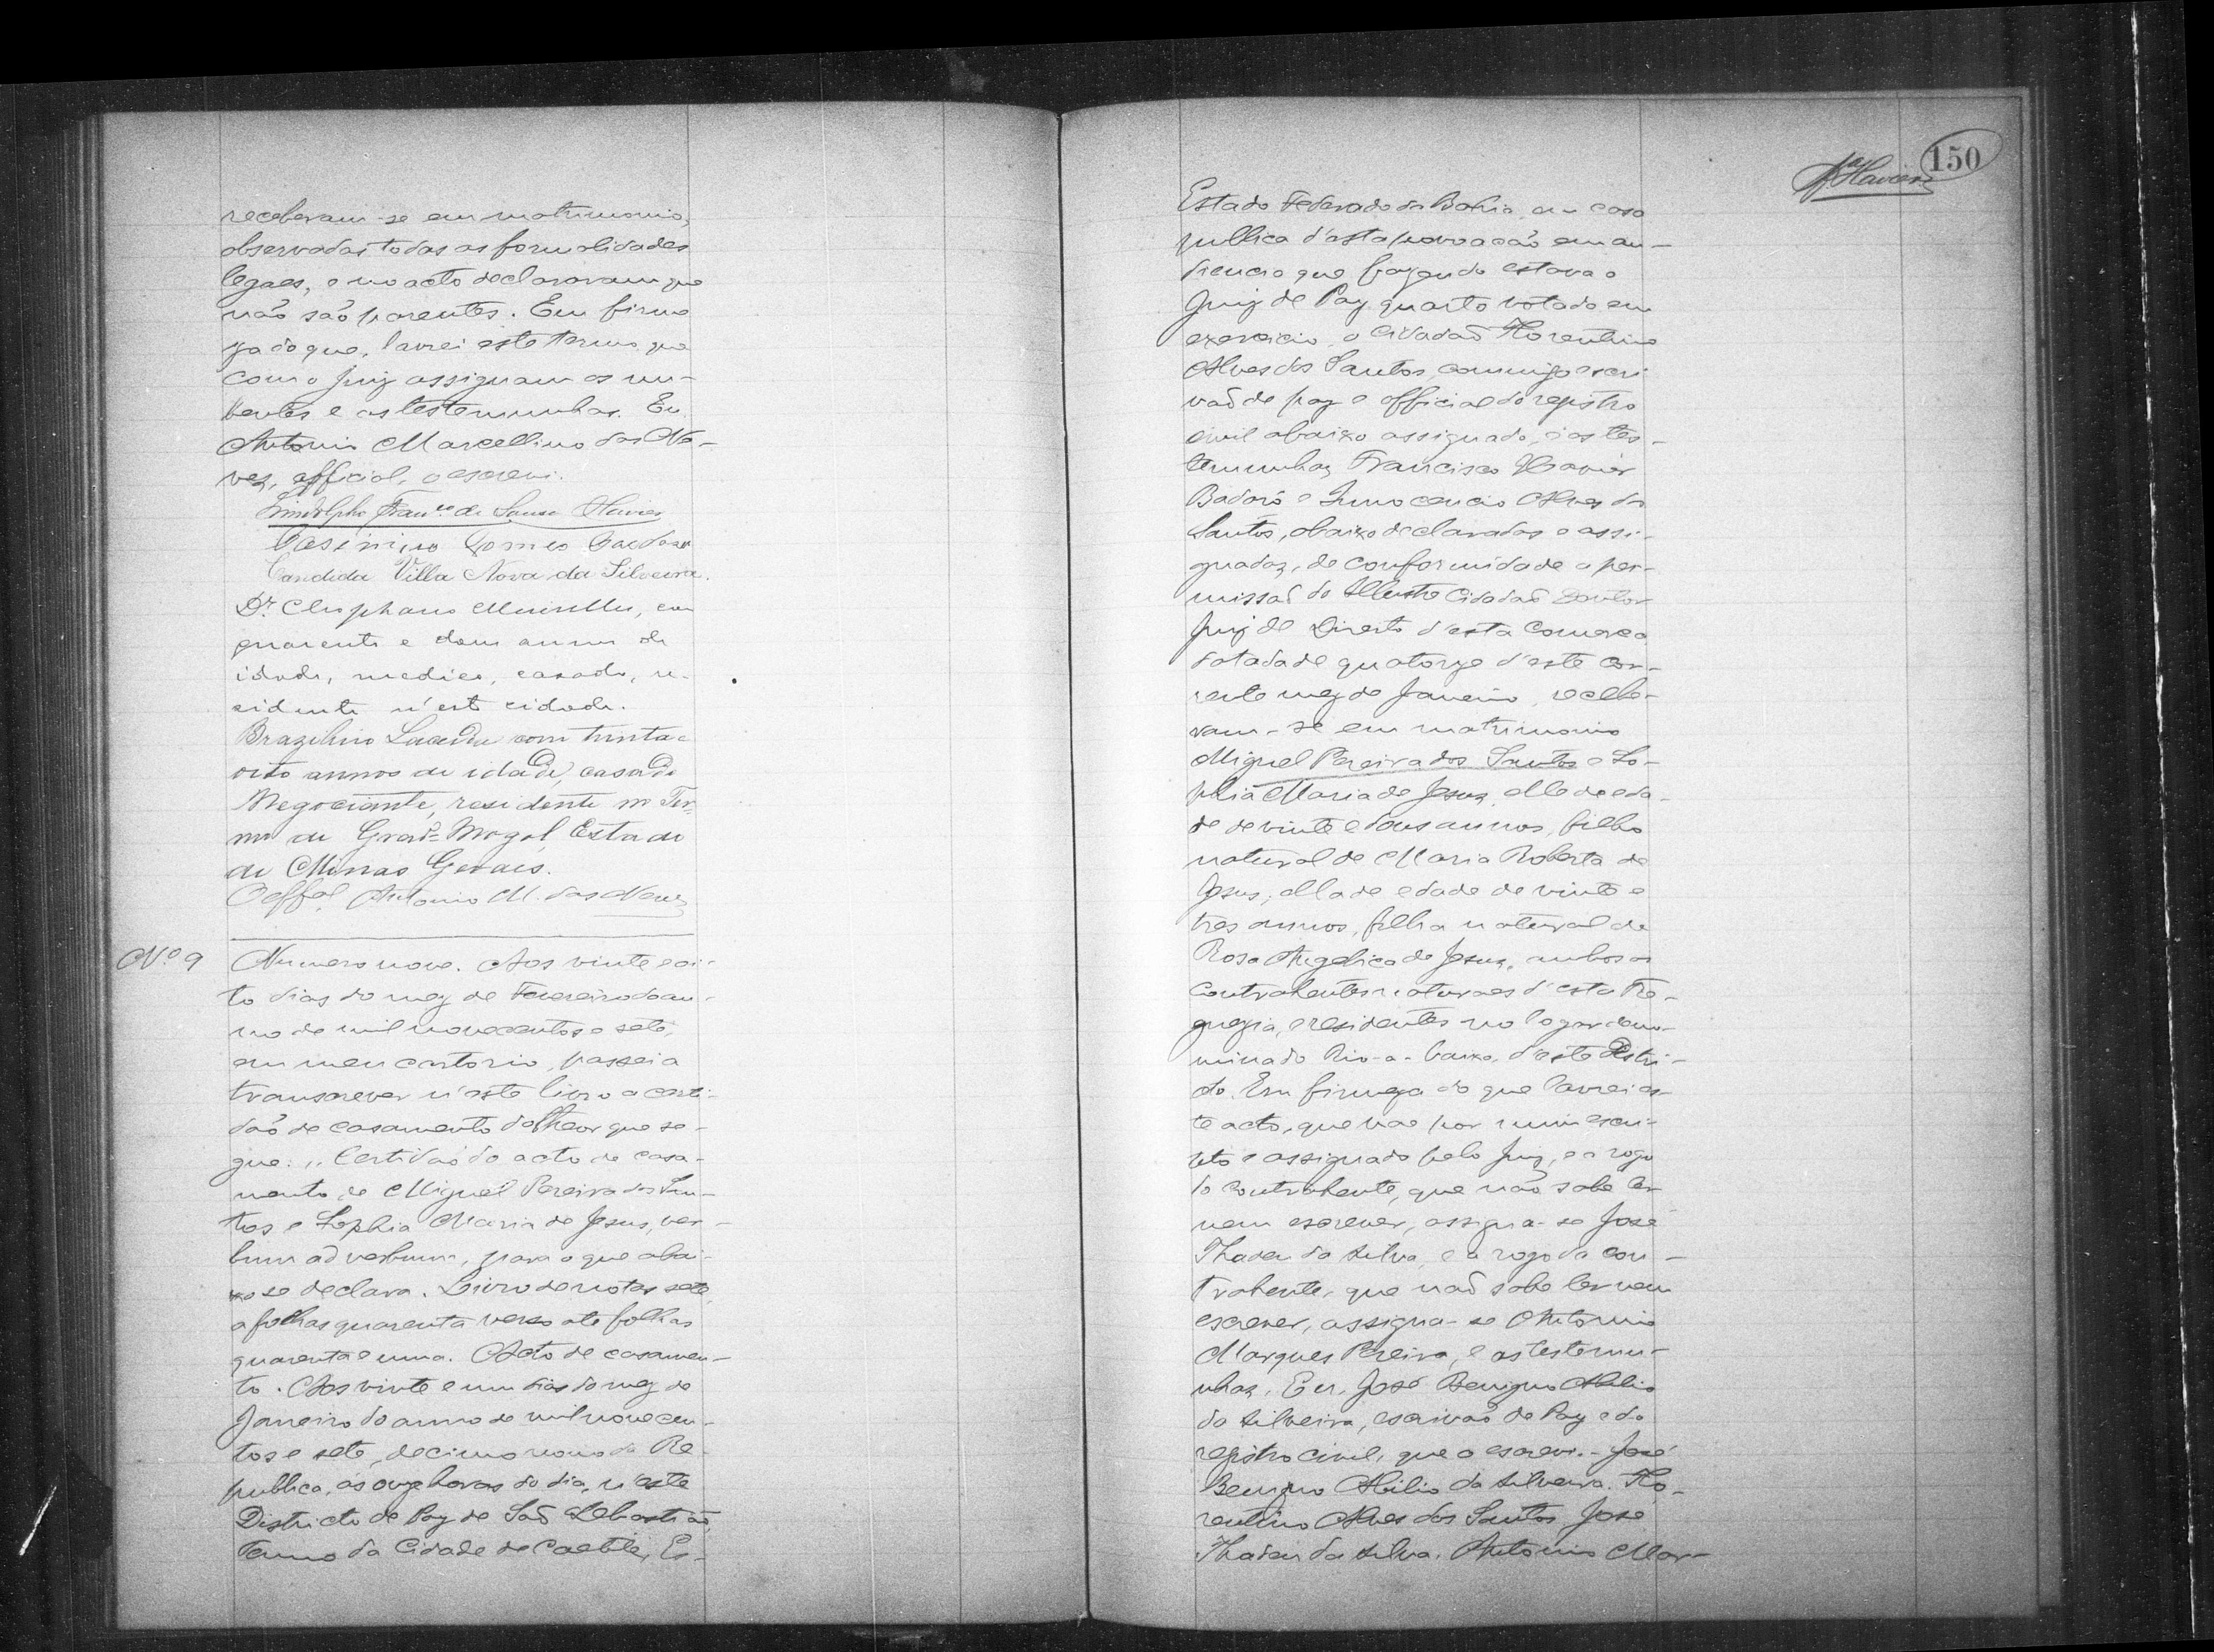 receberam-se em matrimonio,
observadas todas as formalidades
legaes, e no acto declararam que
não são parentes. Em firme
za do que, lavrei este termo que
com o Juiz assignam os nu-
bentes e as testemunhas. Eu
Antonio Marcellino das Ne-
ves, official, o escrevi.
Lindolpho Franco de Souza
Casimiro Gomes Cardoso
Candida Villa Nova da Silveira.
Dr. Clephano, com
quarenta e dous annos de
idade, medico, casado, re-
sidente n'esta cidade.
Brazilino Lacerda com trinta e
oito annos de idade, casado
Negociante, residente no Ter-
mo de Grão-Mogol, Estado
de Minas Geraes.
O offal. Antonio M. das Neves
No. 9
Numero nove. Aos vinte e oi-
to dias do mez de Fevereiro do an-
no de mil novecentos e sete,
em meu cartorio, passei a
transcrever n'este livro a certi-
dão de casamento do theor que se-
gue: "Certidão do acto de casa-
mento de Miguel Pereira dos San-
tos e Sophia Maria de Jesus, ver-
bum ad verbum, para o que abai-
xo se declara. Livro de notas sete,
a folhas quarenta verso ate folhas
quarenta e uma. Acto de casamen-
to. Aos vinte e um dias do mez de
Janeiro do anno de mil novecen-
tos e sete, decimo nono da Re-
publica, ás onze horas do dia, n'este
Districto de Paz de São Sebastião,
Termo da Cidade de Caetité, Es-
150
Estado Federado da Bahia, em casa
publica d'esta povoação em au-
diencia que fazendo estava o
Juiz de Paz quarto votado em
exercicio, o cidadão Florentino
Alves dos Santos, commigo escri
vão de paz e official do registro
civil abaixo assignado, e as tes-
temunhas Francisco Xavier
Badaró e Innocencio Alves dos
Santos, abaixo declaradas e assi-
gnadas, de conformidade a per-
missão do Illustre Cidadão Doutor
Juiz de Direito d'esta Comarca
datada de quatorze d'este cor-
rente mez de Janeiro, recebe-
ram-se em matrimonio
Miguel Pereira dos Santos e So-
phia Maria de Jesus, elle de eda-
de de vinte e dous annos, filho
natural de Maria Roberta de
Jesus; ella de edade de vinte e
tres annos, filha natural de
Rosa Angelica de Jesus, ambos os
contrahentes naturaes d'esta Fre-
guezia, e residentes no logar deno-
minado Rio-a-baixo, d'este Distri-
cto. Em firmeza do que lavrei es-
te acto, que vae por mim escri-
pto e assignado pelo Juiz, e a rogo
do contrahente, que não sabe ler
nem escrever, assigna-se José
Thadeu da Silva, e a rogo da con-
trahente, que não sabe ler nem
escrever, assigna-se Antonio
Marques Pereira, e as testemu-
nhas. Eu, José Benigno Abilio
da Silveira, escrivão de Paz e do
registro civil, que o escrevi.- José
Benigno Abilio da Silveira. Flo-
rentino Alves dos Santos José
Thadeu da Silva. Antonio Mar-